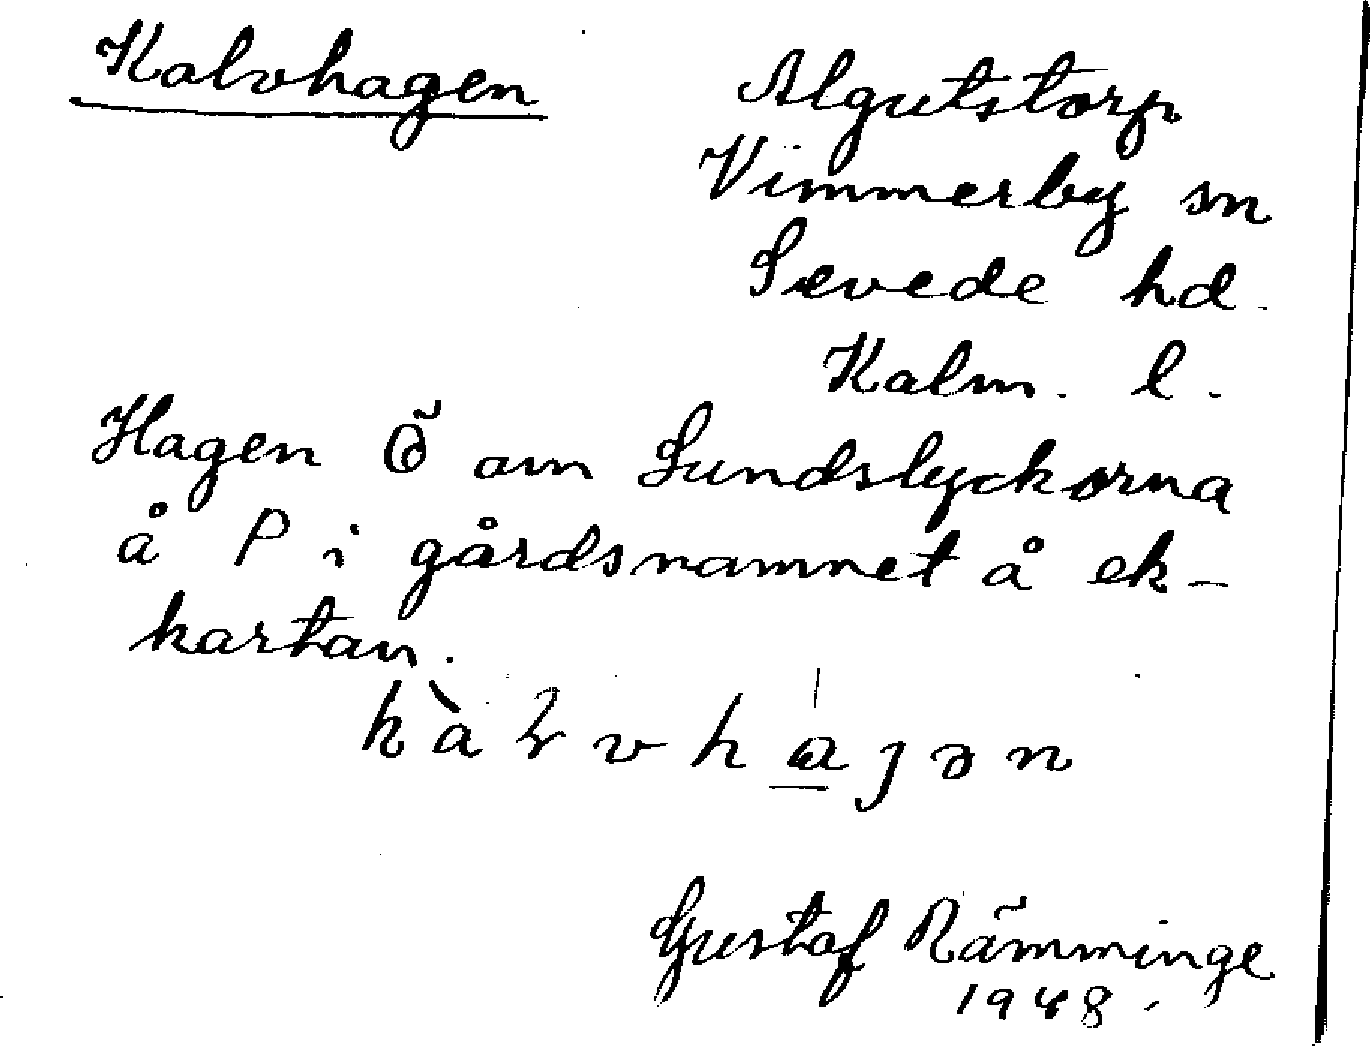 Kalvhagen
Algutstorp
Vimmerby sn
Sevede hd.
Kalm. l.
Hagen Ö om Sundslyckorna
å P i gårdsnamnet å ek-
kartan.
kàɫvhajən
Gustaf Rämminge
1948.